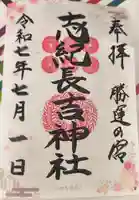 奉拝
勝運の宮
志紀長吉神社
令和七年七月一日